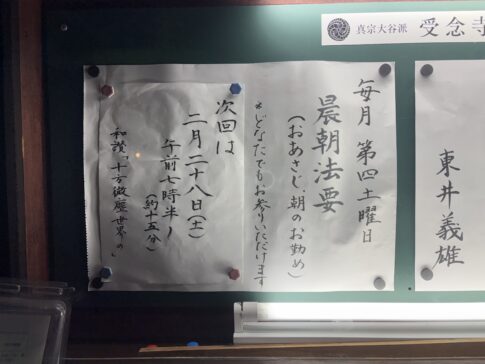 真宗大谷派 受念寺
毎月 第四土曜日
晨朝法要
(おあさじ、朝のお勤め)
*どなたでもお参りいただけます
次回は
二月二十八日(土)
午前七時半〜
(約十五分)
和讃「十方微塵世界の」
東井義雄